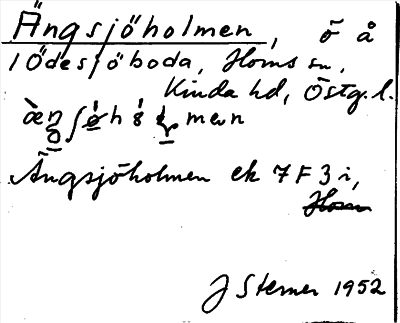 Ängsjöholmen, ö å
i Ödesjöboda, Horns sn,
Kinda hd, Östg.l.
Ängsjöholmen ek 7F3i,
Horn
J Sterner 1952